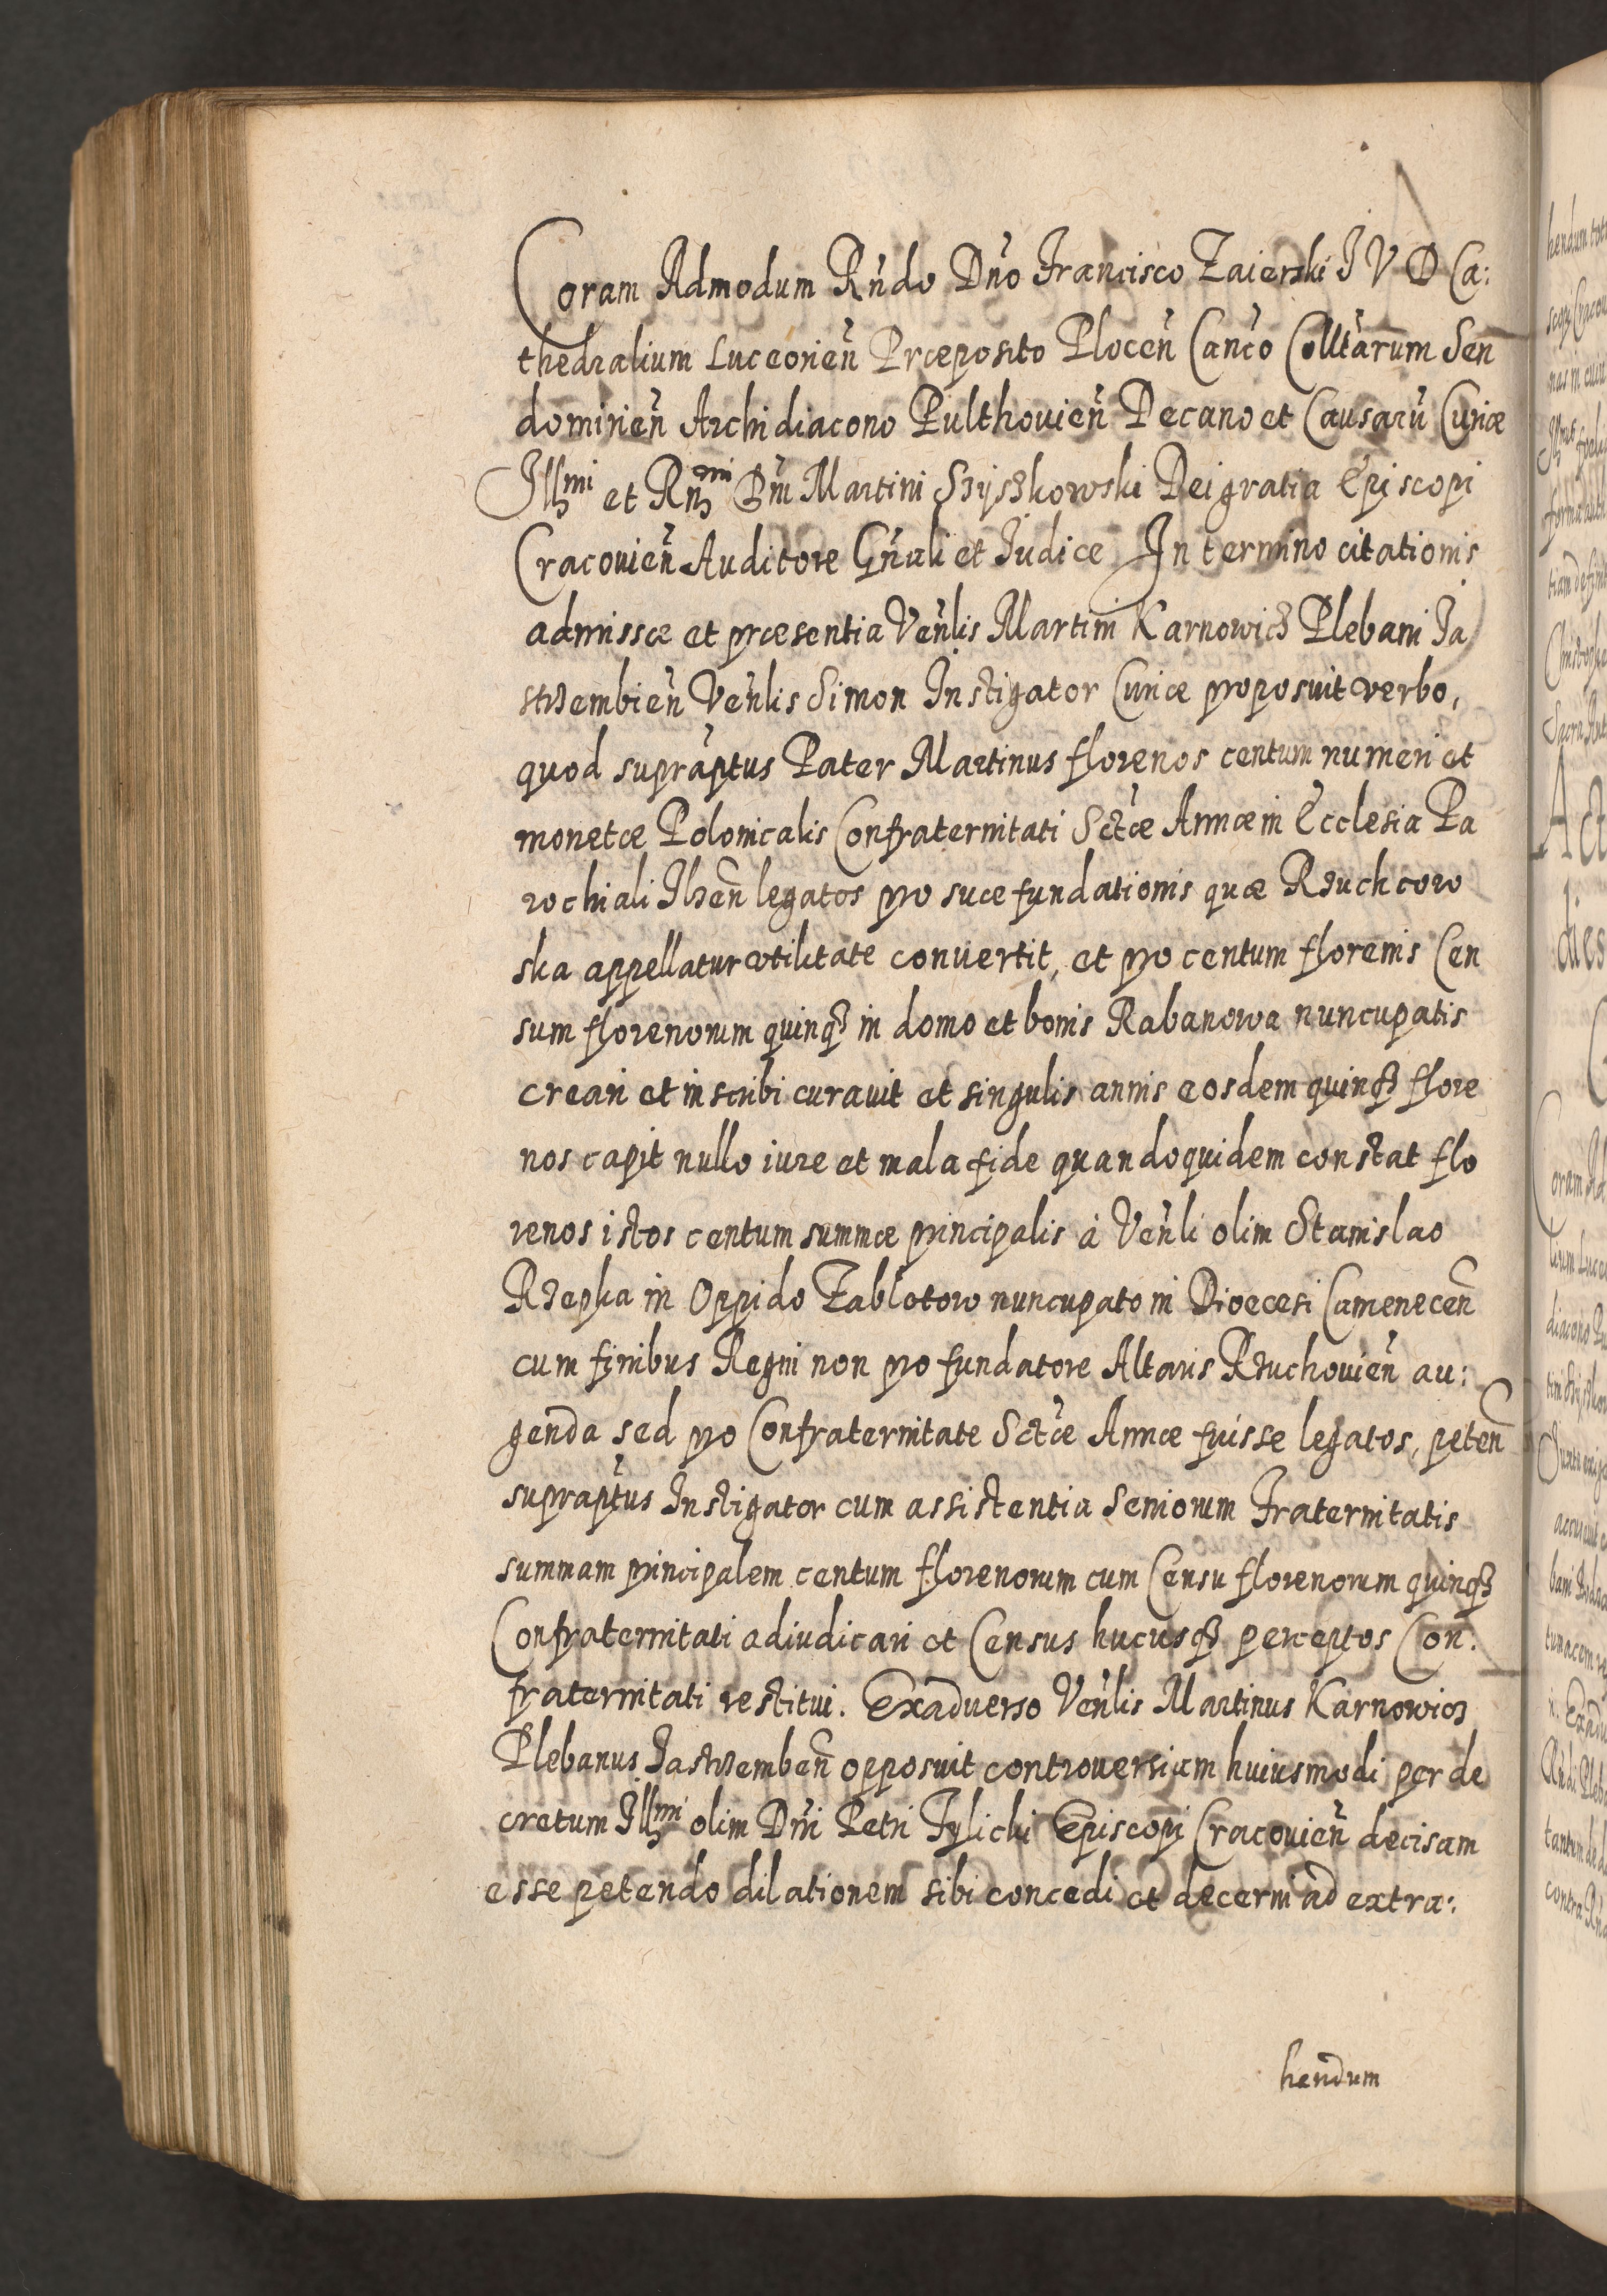 Coram Admodum Rndo Dno Francisco Zaierski I V D Ca:
thedralium Luceorien Præposito Plocen Canco Colltarum Sen
domirien Archidiacono Pulthouien Decano et Causaru Curiæ
Illmi et Rndmi Dni Martini Szyszkowski Dei gratia Episcopi
Cracouien Auditore Gnali et Iudice In termino citationis
admissæ et præsentia Venlis Martini Karnowicz Plebani Ia
strzembien Venlis Simon Instigator Curiæ proposuit verbo,
quod supraptus Pater Martinus florenos centum numeri et
monetæ Polonicalis Confraternitati Sctæ Annæ in Ecclesia Pa
rochiali Ilzen legatos pro suæ fundationis quæ Rzuchcow
ska appellatur vtilitate conuertit, et pro centum florenis Cen
sum florenorum quinqz in domo et bonis Rabanowa nuncupatis
creari et inscribi curauit et singulis annis eosdem quinqz flore
nos capit nullo iure et mala fide quandoquidem constat flo
renos istos centum summæ principalis à Venli olim Stanislao
Rzepka in Oppido Zablotow nuncupato in Dioecesi Camenecen
cum finibus Regni non pro fundatore Altaris Rzuchouien au:
genda sed pro Confraternitate Sctæ Annæ fuisse legatos, peten
supraptus Instigator cum assistentia Seniorum Fraternitatis
summam principalem centum florenorum cum Censu florenorum quinqz
Confraternitati adiudicari et Census hucusqz perceptos Con:
fraternitati restitui. Exaduerso Venlis Martinus Karnowicz
Plebanus Iastrzemben opposuit controuersiam huiusmodi per de
cretum Illmi olim Dni Petri Tylicki Episcopi Cracouien decisam
esse petendo dilationem sibi concedi et decerni ad extra:
hendum